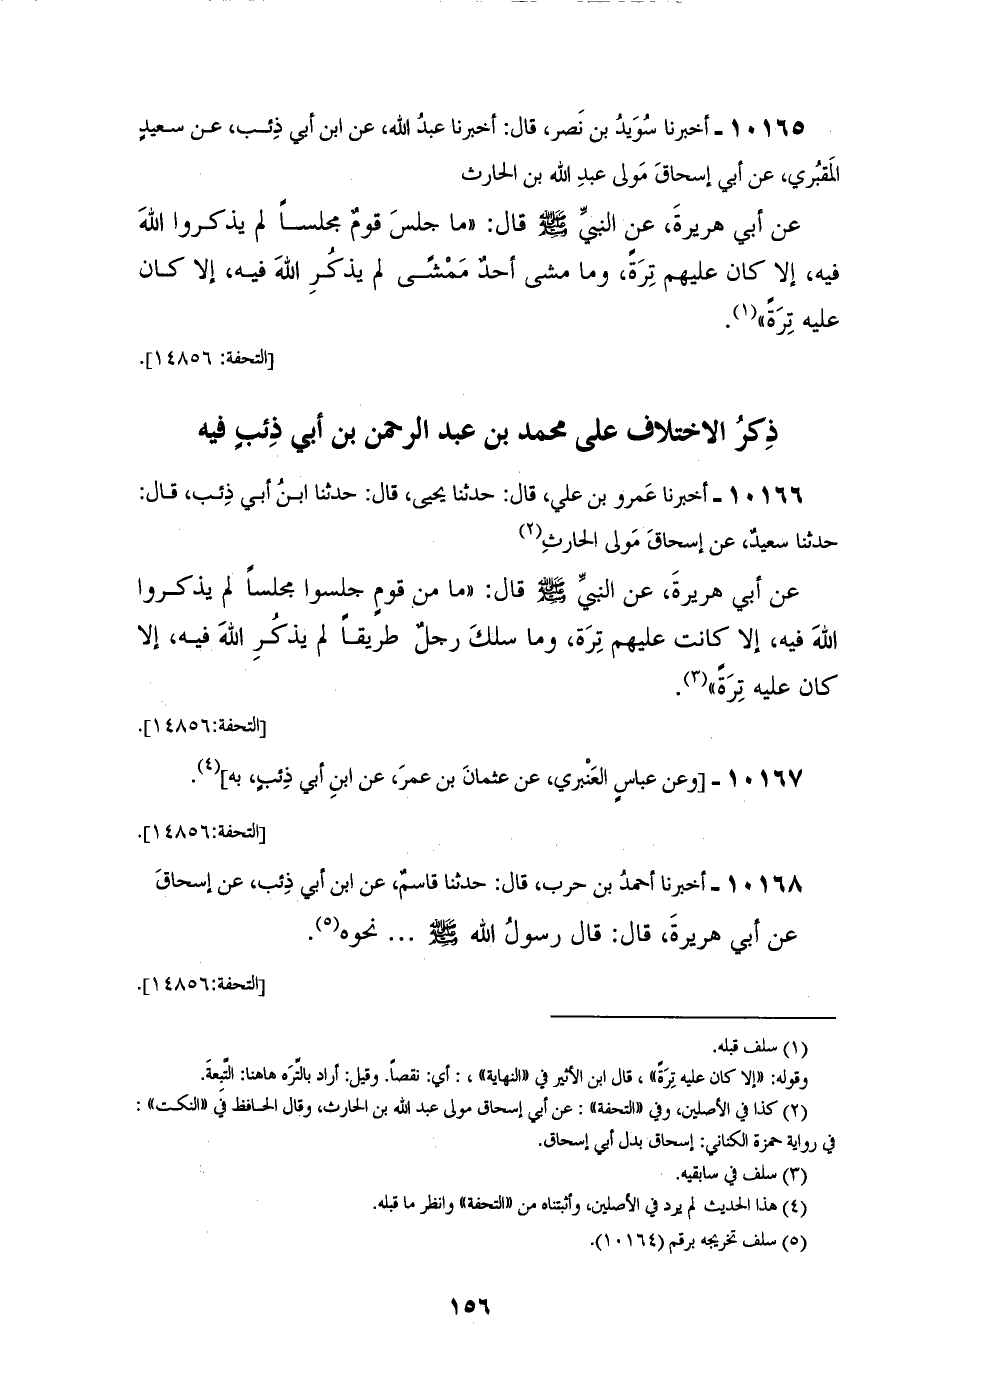 ١٠١٦٥ ـ أخبرنا سُوَيدُ بن نَصر، قال: أخبرنا عبدُ الله، عن ابن أبي ذِئب، عن سعيدٍ
المَقبُري، عن أبي إسحاقَ مَولى عبدِ الله بن الحارث
عن أبي هريرةَ، عن النبيِّ ﷺ قال: «ما جلسَ قومٌ مجلساً لم يذكروا اللهَ
فيه، إلا كان عليهم تِرَةً، وما مشى أحدٌ مَمْشًى لم يذكُرِ اللهَ فيه، إلا كان
عليه تِرَةً»(١).
[التحفة: ١٤٨٥٦].
ذِكرُ الاختلاف على محمد بن عبد الرحمن بن أبي ذِئبٍ فيه
١٠١٦٦ ـ أخبرنا عَمرو بن علي، قال: حدثنا يحيى، قال: حدثنا ابنُ أبي ذِئب، قال:
حدثنا سعيدٌ، عن إسحاقَ مَولى الحارثِ(٢)
عن أبي هريرةَ، عن النبيِّ ﷺ قال: «ما من قومٍ جلسوا مجلساً لم يذكروا
اللهَ فيه، إلا كانت عليهم تِرَة، وما سلكَ رجلٌ طريقاً لم يذكُرِ اللهَ فيه، إلا
كان عليه تِرَةً»(٣).
[التحفة:١٤٨٥٦].
١٠١٦٧ ـ [وعن عباسٍ العَنْبري، عن عثمانَ بن عمرَ، عن ابنِ أبي ذِئبٍ، به](٤).
[التحفة:١٤٨٥٦].
١٠١٦٨ ـ أخبرنا أحمدُ بن حرب، قال: حدثنا قاسمٌ، عن ابن أبي ذِئب، عن إسحاقَ
عن أبي هريرةَ، قال: قال رسولُ الله ﷺ ... نحوه(٥).
[التحفة:١٤٨٥٦].
(١) سلف قبله.
وقوله: «إلا كان عليه تِرَةً» ، قال ابن الأثير في «النهاية» ، : أي: نقصاً. وقيل: أراد بالتِّرَه هاهنا: التَّبِعةَ.
(٢) كذا في الأصلين، وفي «التحفة» : عن أبي إسحاق مولى عبد الله بن الحارث، وقال الحافظ في «النكت» :
في رواية حمزة الكناني: إسحاق بدل أبي إسحاق.
(٣) سلف في سابقيه.
(٤) هذا الحديث لم يرد في الأصلين، وأثبتناه من «التحفة» وانظر ما قبله.
(٥) سلف تخريجه برقم (١٠١٦٤).
١٥٦